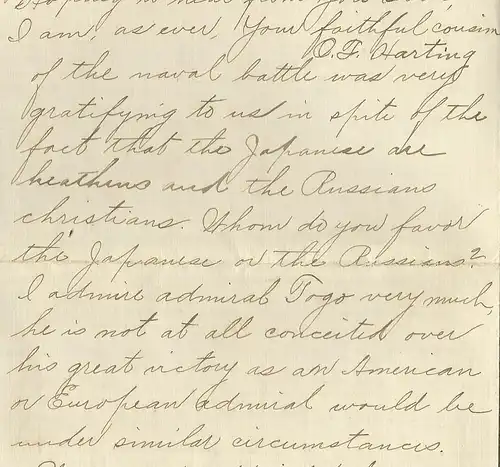 I am, as ever, Your faithful cousin
O. F. Harting
of the naval battle was very
gratifying to us in spite of the
fact that the Japanese are
heathens and the Russians
christians. Whom do you favor
the Japanese or the Russians?
I admire admiral Togo very much,
he is not at all conceited over
his great victory as an American
or European admiral would be
under similar circumstances.